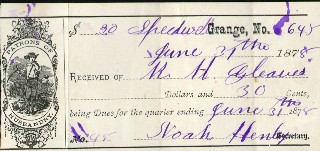 PATRONS OF HUSBANDRY
$ 30 Speedwell Grange, No. 645
June 31 1878
RECEIVED OF M. H. Cleaves
Dollars and 30 Cents,
being Dues for the quarter ending June 31 1878
No. Noah Secretary.